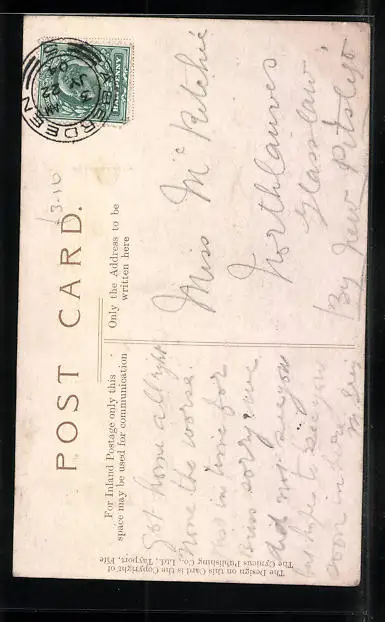 POST CARD.
For Inland Postage only this
space may be used for communication
Only the Address to be
written here
£3-10
ABERDEEN
HALFPENNY
Got home all right
None the worse.
was in time for
Bus sorry we
did not see you
but hope to see you
soon in here
Miss McRitchie
Northlauves
Glasslaw
By New Pitsligo
The Design on this Card is the Copyright of
The Cynicus Publishing Co., Ltd., Tayport, Fife